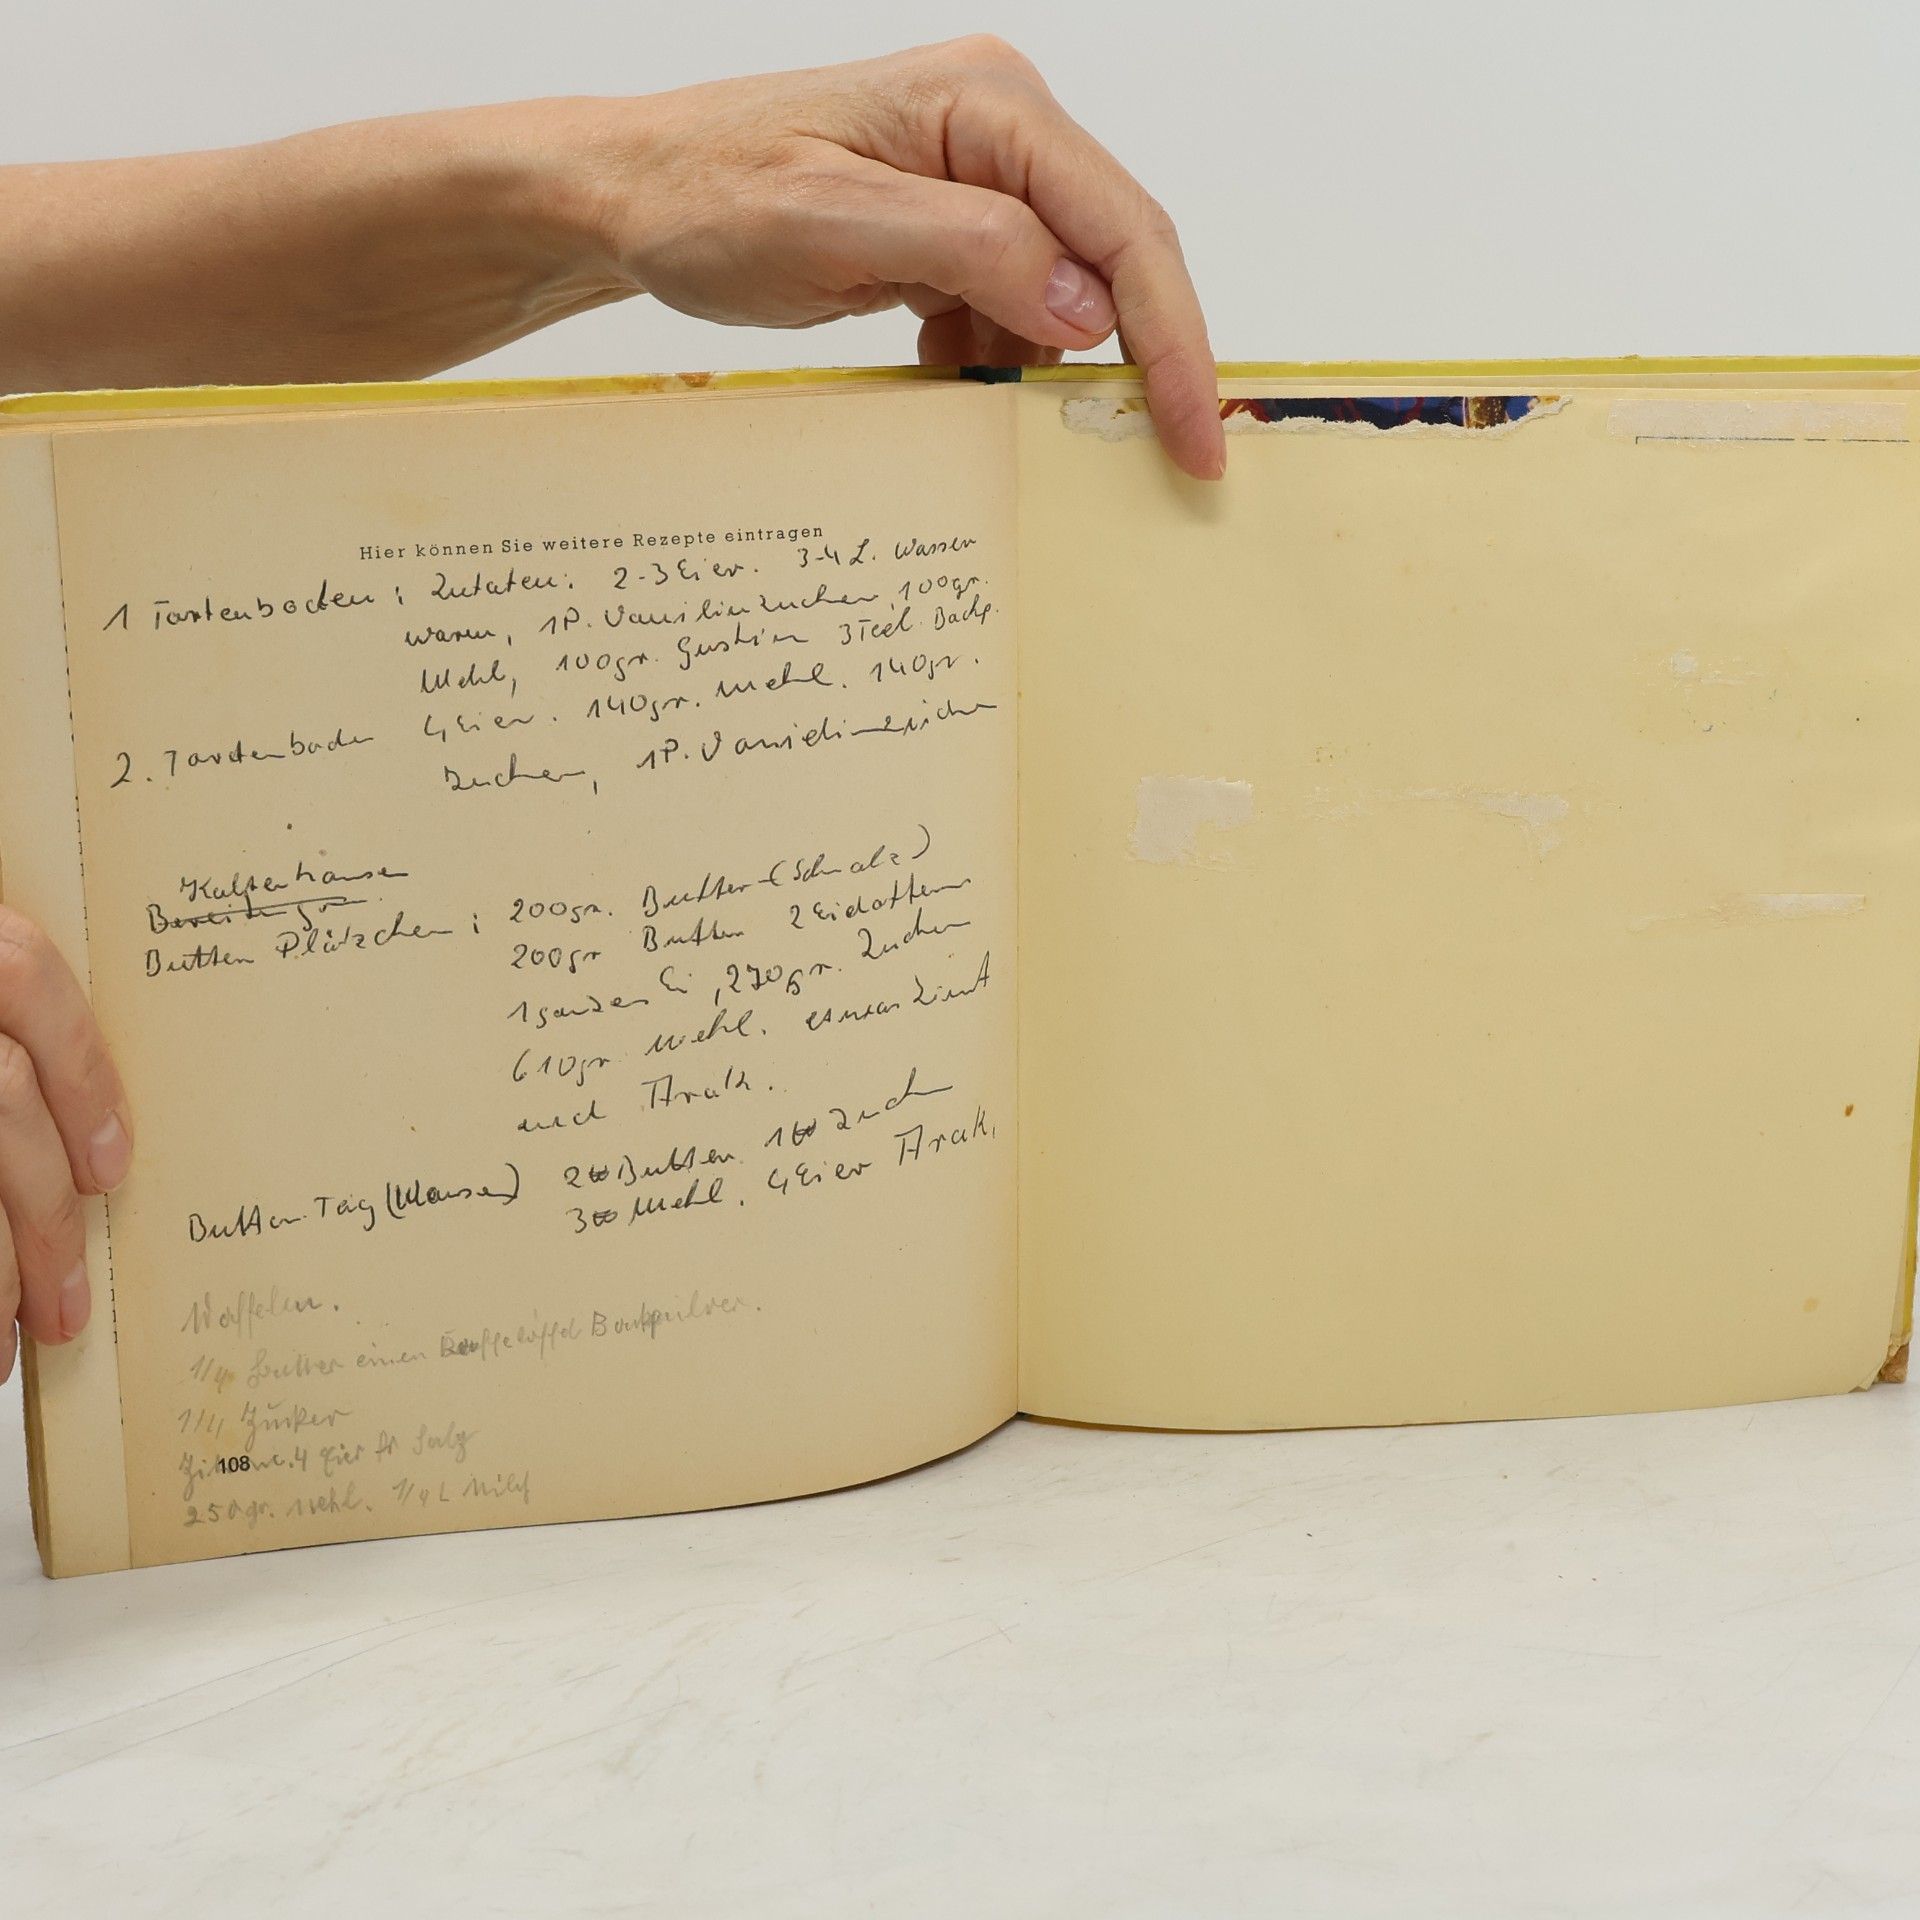 Hier können Sie weitere Rezepte eintragen
1 Tortenboden: Zutaten: 2-3 Eier. 3-4 L. Wasser
warm, 1P. Vanillinzucker, 100gr.
Mehl, 100gr. Gustin 3 Teel. Backp.
2. Tortenboden 4 Eier. 140gr. Mehl. 140gr.
Zucker, 1P. Vanillinzucker
Kaltenhausen
Butter Plätzchen: 200gr. Butter (Schmalz)
200gr Butter 2 Eidottern
1 ganzes Ei, 270gr. Zucker
610gr. Mehl. etwas Zimt
und Arak.
Butter Teig 2 Butter 1 Zucker
3 Mehl. 4 Eier Arak,
Waffeln.
1/4 Butter einen Backpulver.
1/4 Zucker
4 Eier Salz
108
250gr. Mehl. 1/4 L Milch